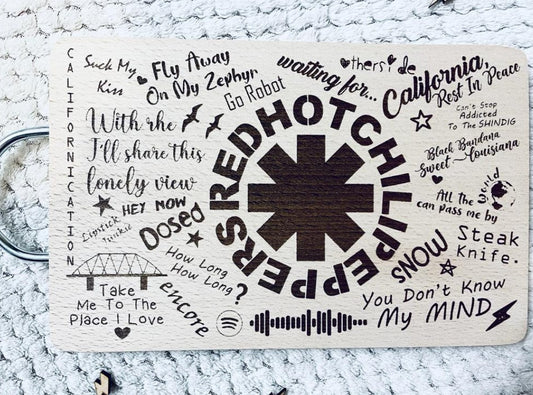 CALIFORNICATION
Suck My
Kiss
Fly Away
On My Zephyr
Go Robot
waiting for...
Otherside
California,
Rest In Peace
Can't Stop
Addicted
To The SHINDIG
With rhe
I'll share this
lonely view
Black Bandana
Sweet Louisiana
RED HOT CHILI PEPPERS
HEY NOW
Lipstick
Junkie
Dosed
All the world
can pass me by
Steak
Knife.
SNOW
How Long
How Long?
Take
Me To The
Place I Love
encore
You Don't Know
My MIND